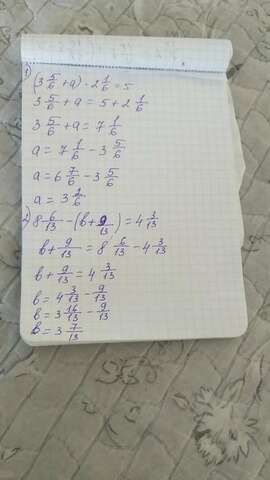 1) (3 5/6 + a) - 2 1/6 = 5
3 5/6 + a = 5 + 2 1/6
3 5/6 + a = 7 1/6
a = 7 1/6 - 3 5/6
a = 6 7/6 - 3 5/6
a = 3 2/6
2) 8 6/13 - (b + 9/13) = 4 3/13
b + 9/13 = 8 6/13 - 4 3/13
b + 9/13 = 4 3/13
b = 4 3/13 - 9/13
b = 3 16/13 - 9/13
b = 3 7/13